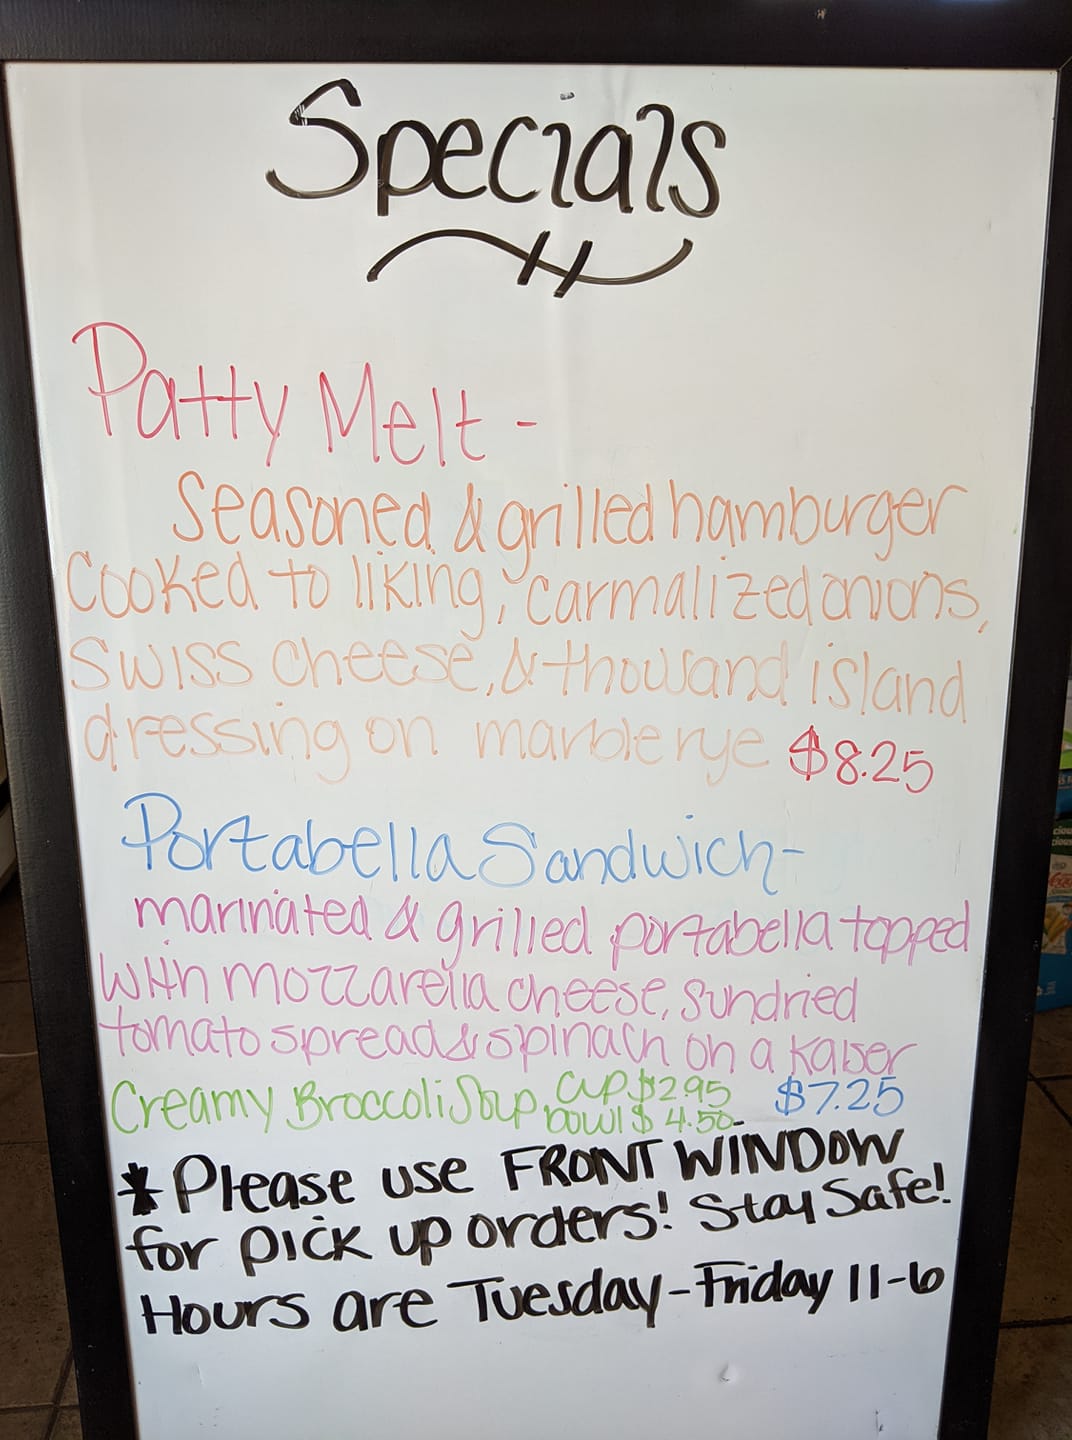 Specials
Patty Melt -
Seasoned & grilled hamburger
Cooked to liking, carmalized onions,
swiss cheese, & thousand island
dressing on marble rye $8.25
Portabella Sandwich-
marinated & grilled portabella topped
with mozzarella cheese, sundried
tomato spread & spinach on a kaiser
$7.25
Creamy Broccoli Soup cup $2.95
bowl $4.50
*Please use FRONT WINDOW
for pick up orders! Stay Safe!
Hours are Tuesday-Friday 11-6